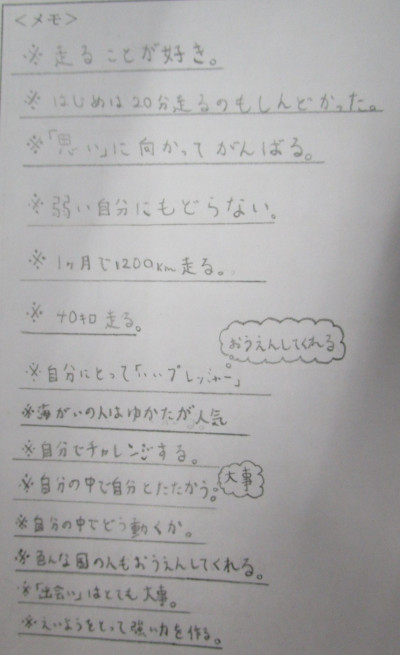 <メモ>
※走ることが好き。
※はじめは20分走るのもしんどかった。
※「思い」に向かってがんばる。
※弱い自分にもどらない。
※1ヶ月で1200km走る。
※40キロ走る。
おうえんしてくれる
※自分にとって「いいプレッシャー」
※海がいの人はゆかたが人気
※自分でチャレンジする。
※自分の中で自分とたたかう。
大事
※自分の中でどう動くか。
※色んな国の人もおうえんしてくれる。
※「出会い」はとても大事。
※えいようをとって強い力を作る。